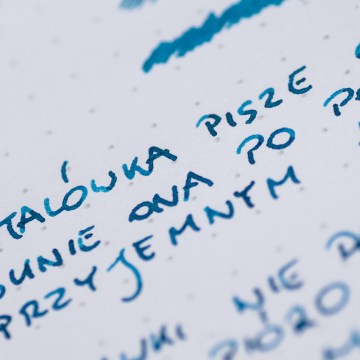 TALÓWKA PISZE
SUNIE ONA PO
PRZYJEMNYM
WKI NIE
PIÓRO